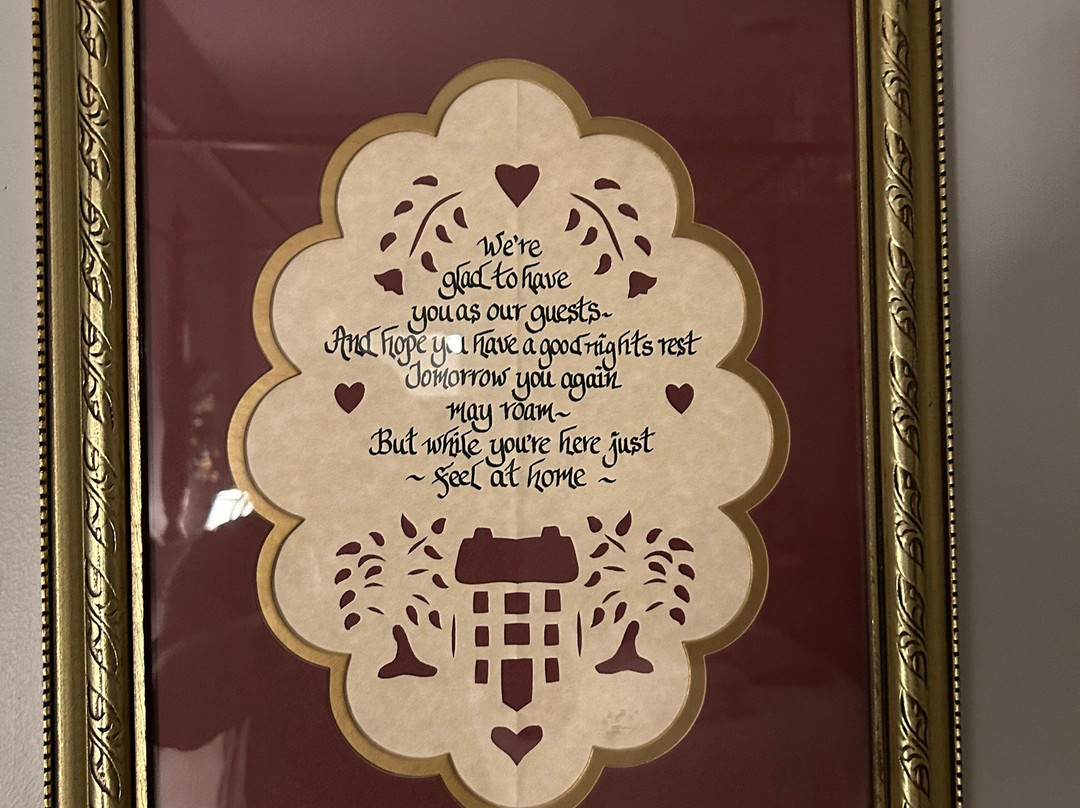 We're
glad to have
you as our guests~
And hope you have a good night's rest
Tomorrow you again
may roam~
But while you're here just
~ feel at home ~